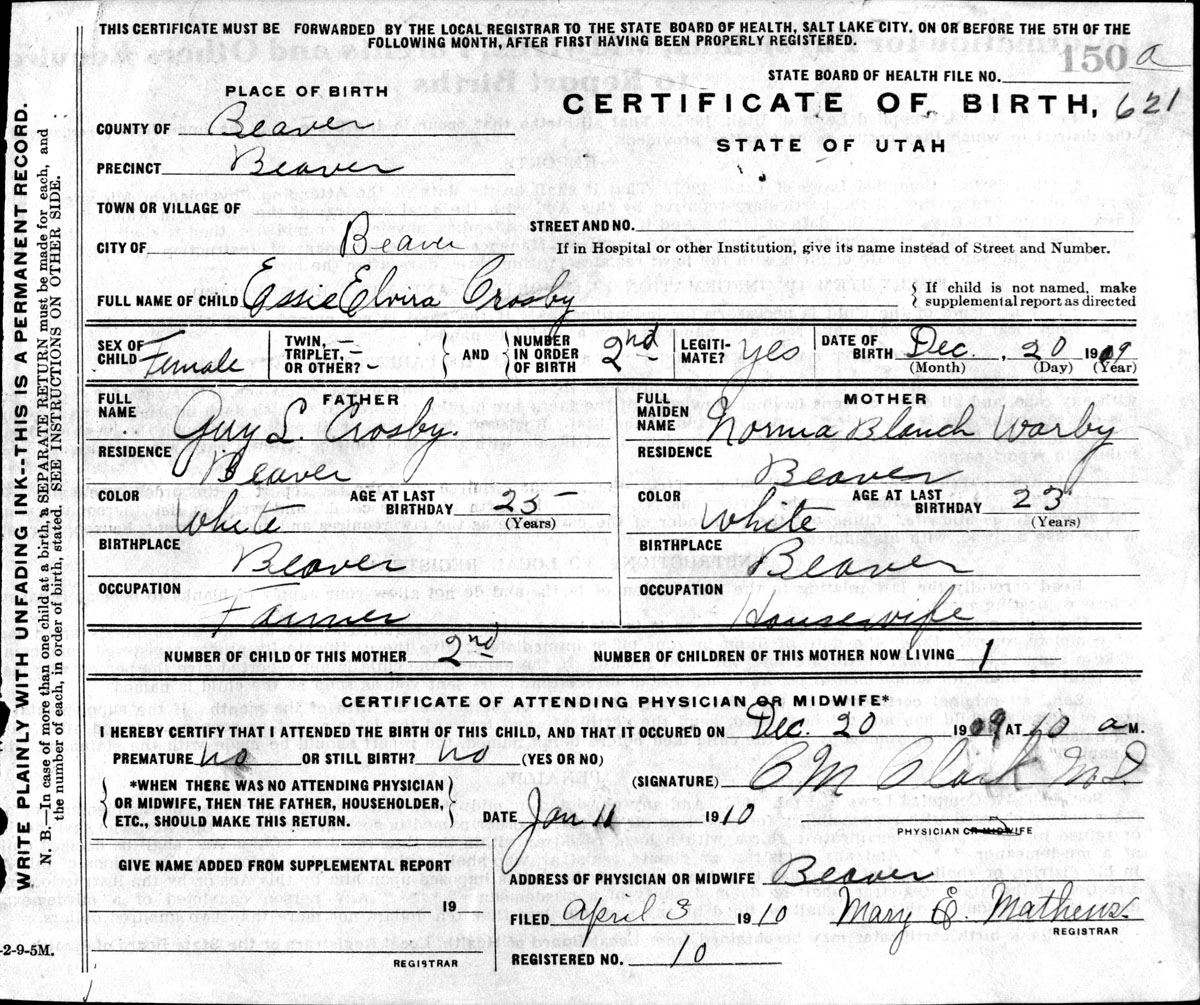 THIS CERTIFICATE MUST BE FORWARDED BY THE LOCAL REGISTRAR TO THE STATE BOARD OF HEALTH, SALT LAKE CITY. ON OR BEFORE THE 5TH OF THE
FOLLOWING MONTH, AFTER FIRST HAVING BEEN PROPERLY REGISTERED.
150 a
STATE BOARD OF HEALTH FILE NO.
PLACE OF BIRTH
CERTIFICATE OF BIRTH, 621
STATE OF UTAH
COUNTY OF Beaver
PRECINCT Beaver
TOWN OR VILLAGE OF
STREET AND NO.
CITY OF Beaver
If in Hospital or other Institution, give its name instead of Street and Number.
FULL NAME OF CHILD Essie Elvira Crosby
{ If child is not named, make
supplemental report as directed
SEX OF CHILD Female
TWIN, TRIPLET, OR OTHER? -
} AND {
NUMBER IN ORDER OF BIRTH 2nd
LEGITIMATE? yes
DATE OF BIRTH Dec. , 20 1909
(Month) (Day) (Year)
FATHER
FULL NAME Guy L. Crosby.
RESIDENCE Beaver
COLOR White
AGE AT LAST BIRTHDAY 25 -
(Years)
BIRTHPLACE Beaver
OCCUPATION Farmer
MOTHER
FULL MAIDEN NAME Norma Blanch Warby
RESIDENCE Beaver
COLOR White
AGE AT LAST BIRTHDAY 23
(Years)
BIRTHPLACE Beaver
OCCUPATION Housewife
NUMBER OF CHILD OF THIS MOTHER 2nd
NUMBER OF CHILDREN OF THIS MOTHER NOW LIVING 1
CERTIFICATE OF ATTENDING PHYSICIAN OR MIDWIFE*
I HEREBY CERTIFY THAT I ATTENDED THE BIRTH OF THIS CHILD, AND THAT IT OCCURED ON Dec. 20 1909 AT 10 a M.
PREMATURE no OR STILL BIRTH? no (YES OR NO)
(SIGNATURE) C M Clark M D
{ *WHEN THERE WAS NO ATTENDING PHYSICIAN
OR MIDWIFE, THEN THE FATHER, HOUSEHOLDER,
ETC., SHOULD MAKE THIS RETURN. }
DATE Jan 11 1910
PHYSICIAN OR MIDWIFE
GIVE NAME ADDED FROM SUPPLEMENTAL REPORT
ADDRESS OF PHYSICIAN OR MIDWIFE Beaver
19
FILED April 3 1910 Mary E. Mathews.
REGISTRAR
REGISTERED NO. 10
REGISTRAR
-2-9-5M.
WRITE PLAINLY WITH UNFADING INK--THIS IS A PERMANENT RECORD.
N. B.—In case of more than one child at a birth, a SEPARATE RETURN must be made for each, and
the number of each, in order of birth, stated. SEE INSTRUCTIONS ON OTHER SIDE.